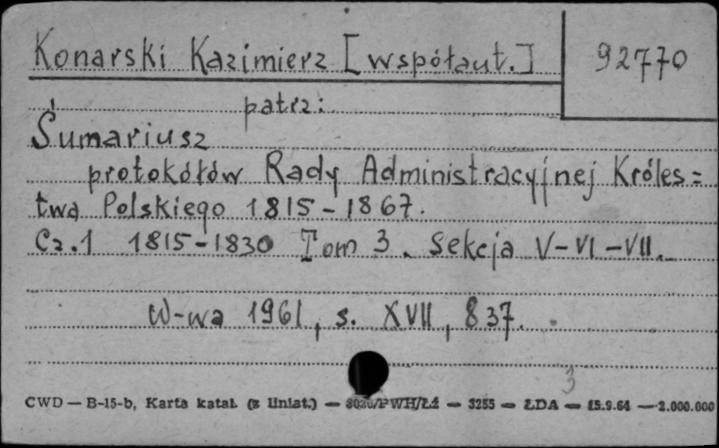 Konarski Kazimierz [współaut.] 92770
patrz:
Sumariusz
protokółów Rady Administracyjnej Króles=
twa Polskiego 1815-1867.
Cz.1 1815-1830 Tom 3. Sekcja V-VI-VII.
W-wa 1961, s. XVII, 837.
3
CWD — B-15-b, Karta katal. (z liniat.) — PWH/Łż — 3255 — ŁDA — 15.9.64 — 2.000.000